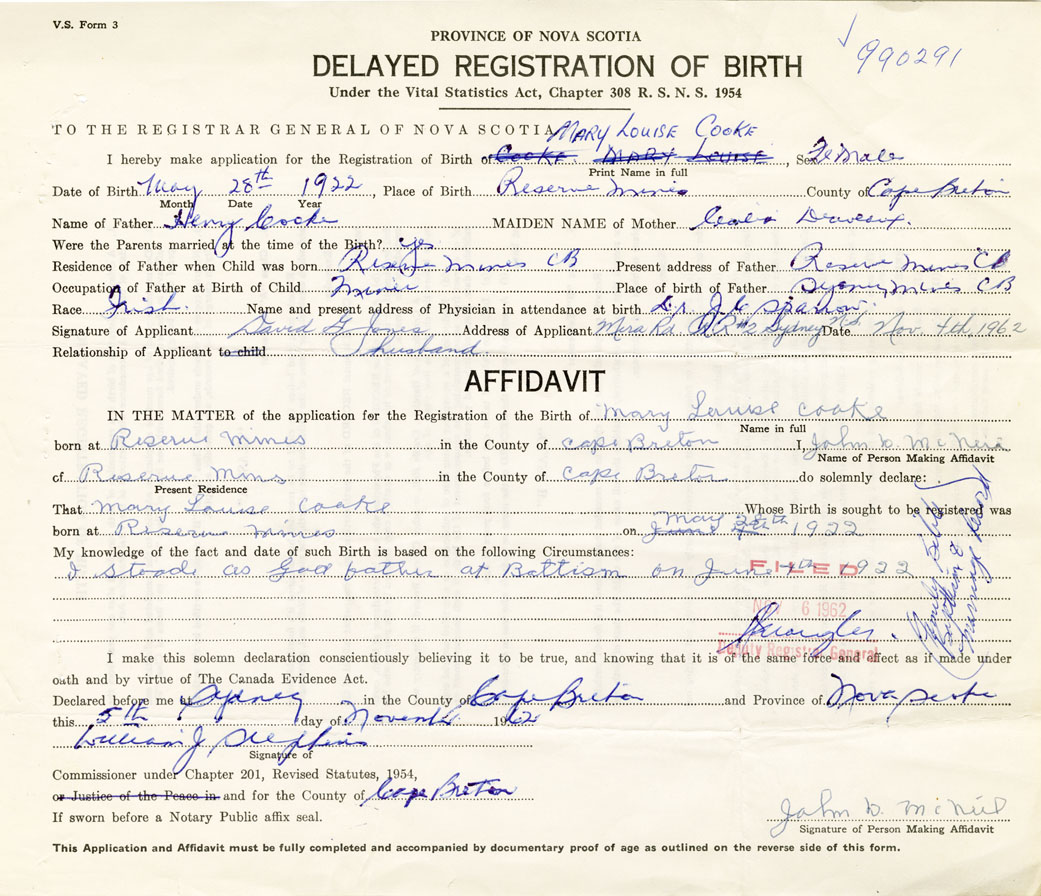 V.S. Form 3
990291
PROVINCE OF NOVA SCOTIA
DELAYED REGISTRATION OF BIRTH
Under the Vital Statistics Act, Chapter 308 R. S. N. S. 1954
TO THE REGISTRAR GENERAL OF NOVA SCOTIA MARY LOUISE COOKE
I hereby make application for the Registration of Birth of COOKE MARY LOUISE, Sex Female
Print Name in full
Date of Birth May 28th 1922, Place of Birth Reserve Mines County of Cape Breton
Month Date Year
Name of Father Henry Cooke MAIDEN NAME of Mother Deveaux.
Were the Parents married at the time of the Birth? yes
Residence of Father when Child was born Reserve Mines CB Present address of Father Reserve Mines CB
Occupation of Father at Birth of Child Miner Place of birth of Father Sydney Mines CB
Race Irish. Name and present address of Physician in attendance at birth Dr. J. C. Sparrow.
Signature of Applicant David G Jones Address of Applicant Mira Rd Sydney Date Nov. 4th, 1962
Relationship of Applicant to child husband
AFFIDAVIT
IN THE MATTER of the application for the Registration of the Birth of Mary Louise Cooke
Name in full
born at Reserve Mines in the County of Cape Breton I, John D. McNeil
Name of Person Making Affidavit
of Reserve Mins in the County of Cape Breton do solemnly declare:
Present Residence
That Mary Louise Cooke Whose Birth is sought to be registered was
born at Reserve Mines on May 28th 1922
My knowledge of the fact and date of such Birth is based on the following Circumstances:
I stoode as God father at Battism on June 4th 1922
FILED
NOV 6 1962
Deputy Registrar General
Family Bible
Baptism &
marriage record
I make this solemn declaration conscientiously believing it to be true, and knowing that it is of the same force and affect as if made under
oath and by virtue of The Canada Evidence Act.
Declared before me at Sydney in the County of Cape Breton and Province of Nova Scotia
this 5th day of November 1962
William J Stephens
Signature of
Commissioner under Chapter 201, Revised Statutes, 1954,
or Justice of the Peace in and for the County of Cape Breton
If sworn before a Notary Public affix seal.
John D. McNeil
Signature of Person Making Affidavit
This Application and Affidavit must be fully completed and accompanied by documentary proof of age as outlined on the reverse side of this form.